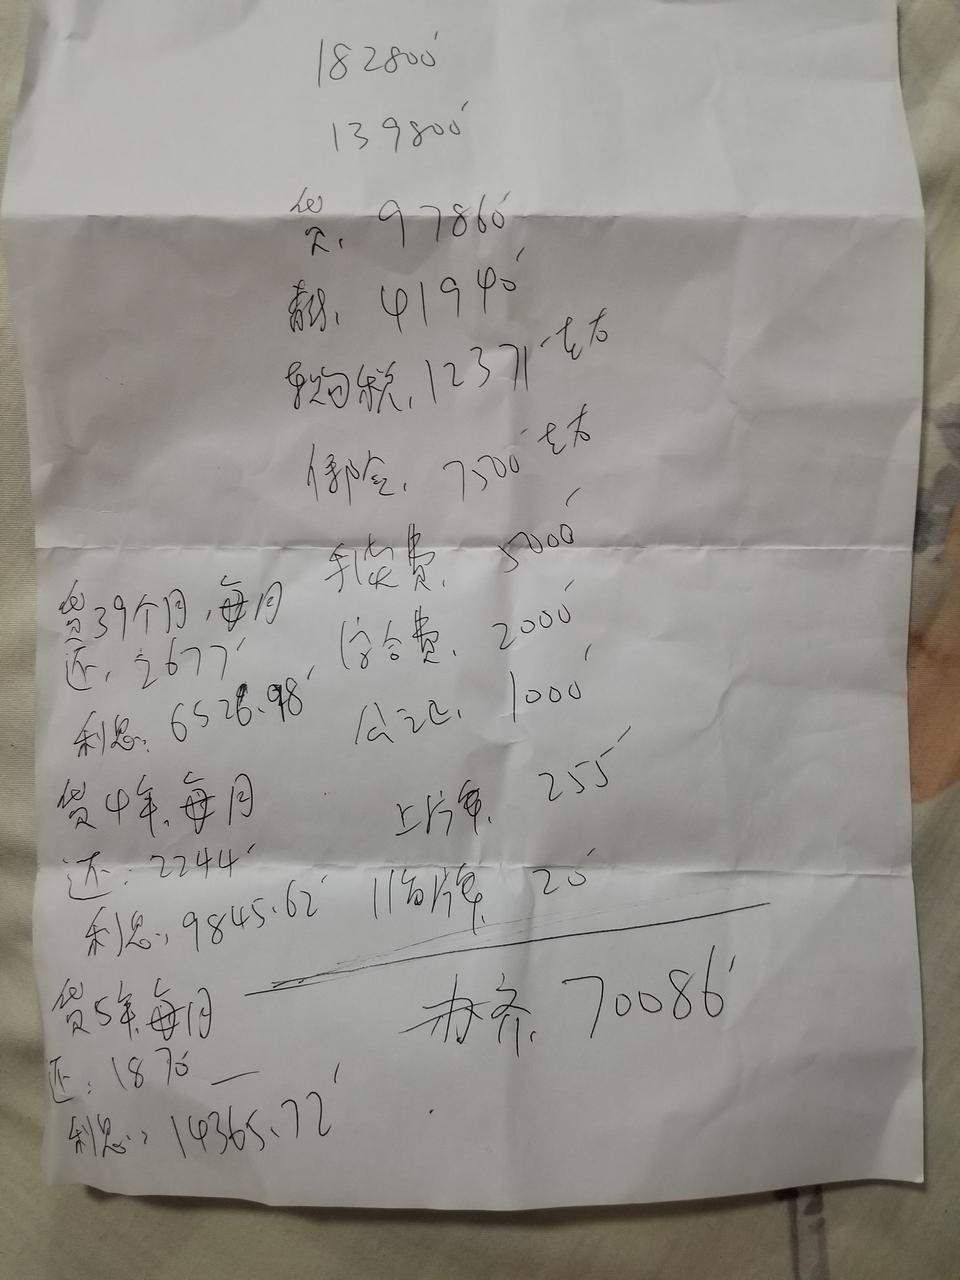 182800
139800
贷. 97860
首付. 41940
购税. 12371 左右
保险. 7500 左右
手续费. 5000
综合费. 2000
公证. 1000
上牌. 255
临牌. 20
办齐. 70086
贷39个月,每月
还. 2677
利息: 6528.98
贷4年,每月
还: 2244
利息: 9845.62
贷5年,每月
还: 1870
利息: 14365.72